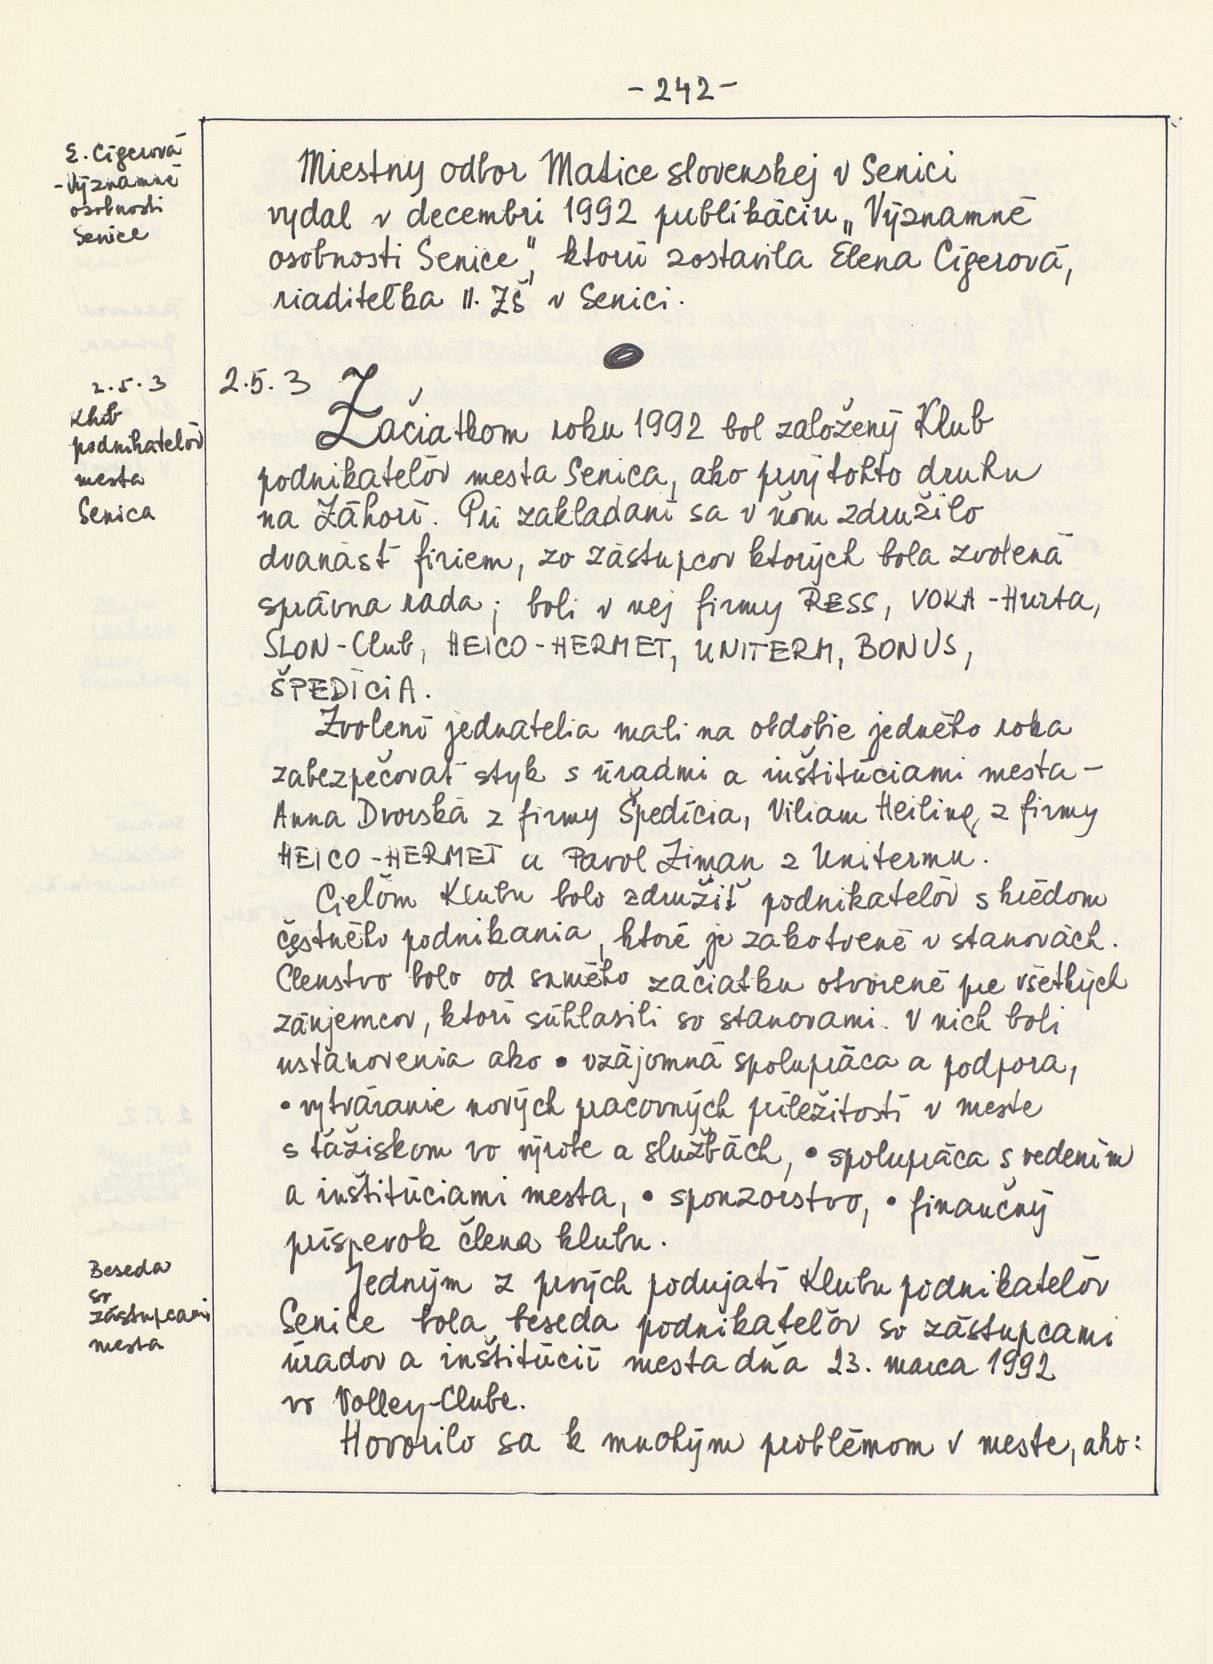 - 242 -
E. Cigerová
- Významné
osobnosti
Senice
Miestny odbor Matice slovenskej v Senici
vydal v decembri 1992 publikáciu „Významné
osobnosti Senice", ktorú zostavila Elena Cigerová,
riaditeľka II. ZŠ v Senici.
2.5.3
Klub
podnikateľov
mesta
Senica
2.5.3 Začiatkom roku 1992 bol založený Klub
podnikateľov mesta Senica, ako prvý tohto druhu
na Záhorí. Pri zakladaní sa v ňom združilo
dvanásť firiem, zo zástupcov ktorých bola zvolená
správna rada; boli v nej firmy RESS, VOKA - Hurta,
SLON - Club, HEICO - HERMET, UNITERM, BONUS,
ŠPEDÍCIA.
Zvolení jednatelia mali na obdobie jedného roka
zabezpečovať styk s úradmi a inštitúciami mesta -
Anna Dvorská z firmy Špedícia, Viliam Heiling z firmy
HEICO - HERMET a Pavol Ziman z Unitermu.
Cieľom Klubu bolo združiť podnikateľov s krédom
čestného podnikania, ktoré je zakotvené v stanovách.
Členstvo bolo od samého začiatku otvorené pre všetkých
záujemcov, ktorí súhlasili so stanovami. V nich boli
ustanovenia ako • vzájomná spolupráca a podpora,
• vytváranie nových pracovných príležitostí v meste
s ťažiskom vo výrobe a službách, • spolupráca s vedením
a inštitúciami mesta, • sponzorstvo, • finančný
príspevok člena klubu.
Beseda
so
zástupcami
mesta
Jedným z prvých podujatí Klubu podnikateľov
Senice bola beseda podnikateľov so zástupcami
úradov a inštitúcií mesta dňa 23. marca 1992
vo Volley-Clube.
Hovorilo sa k mnohým problémom v meste, ako: